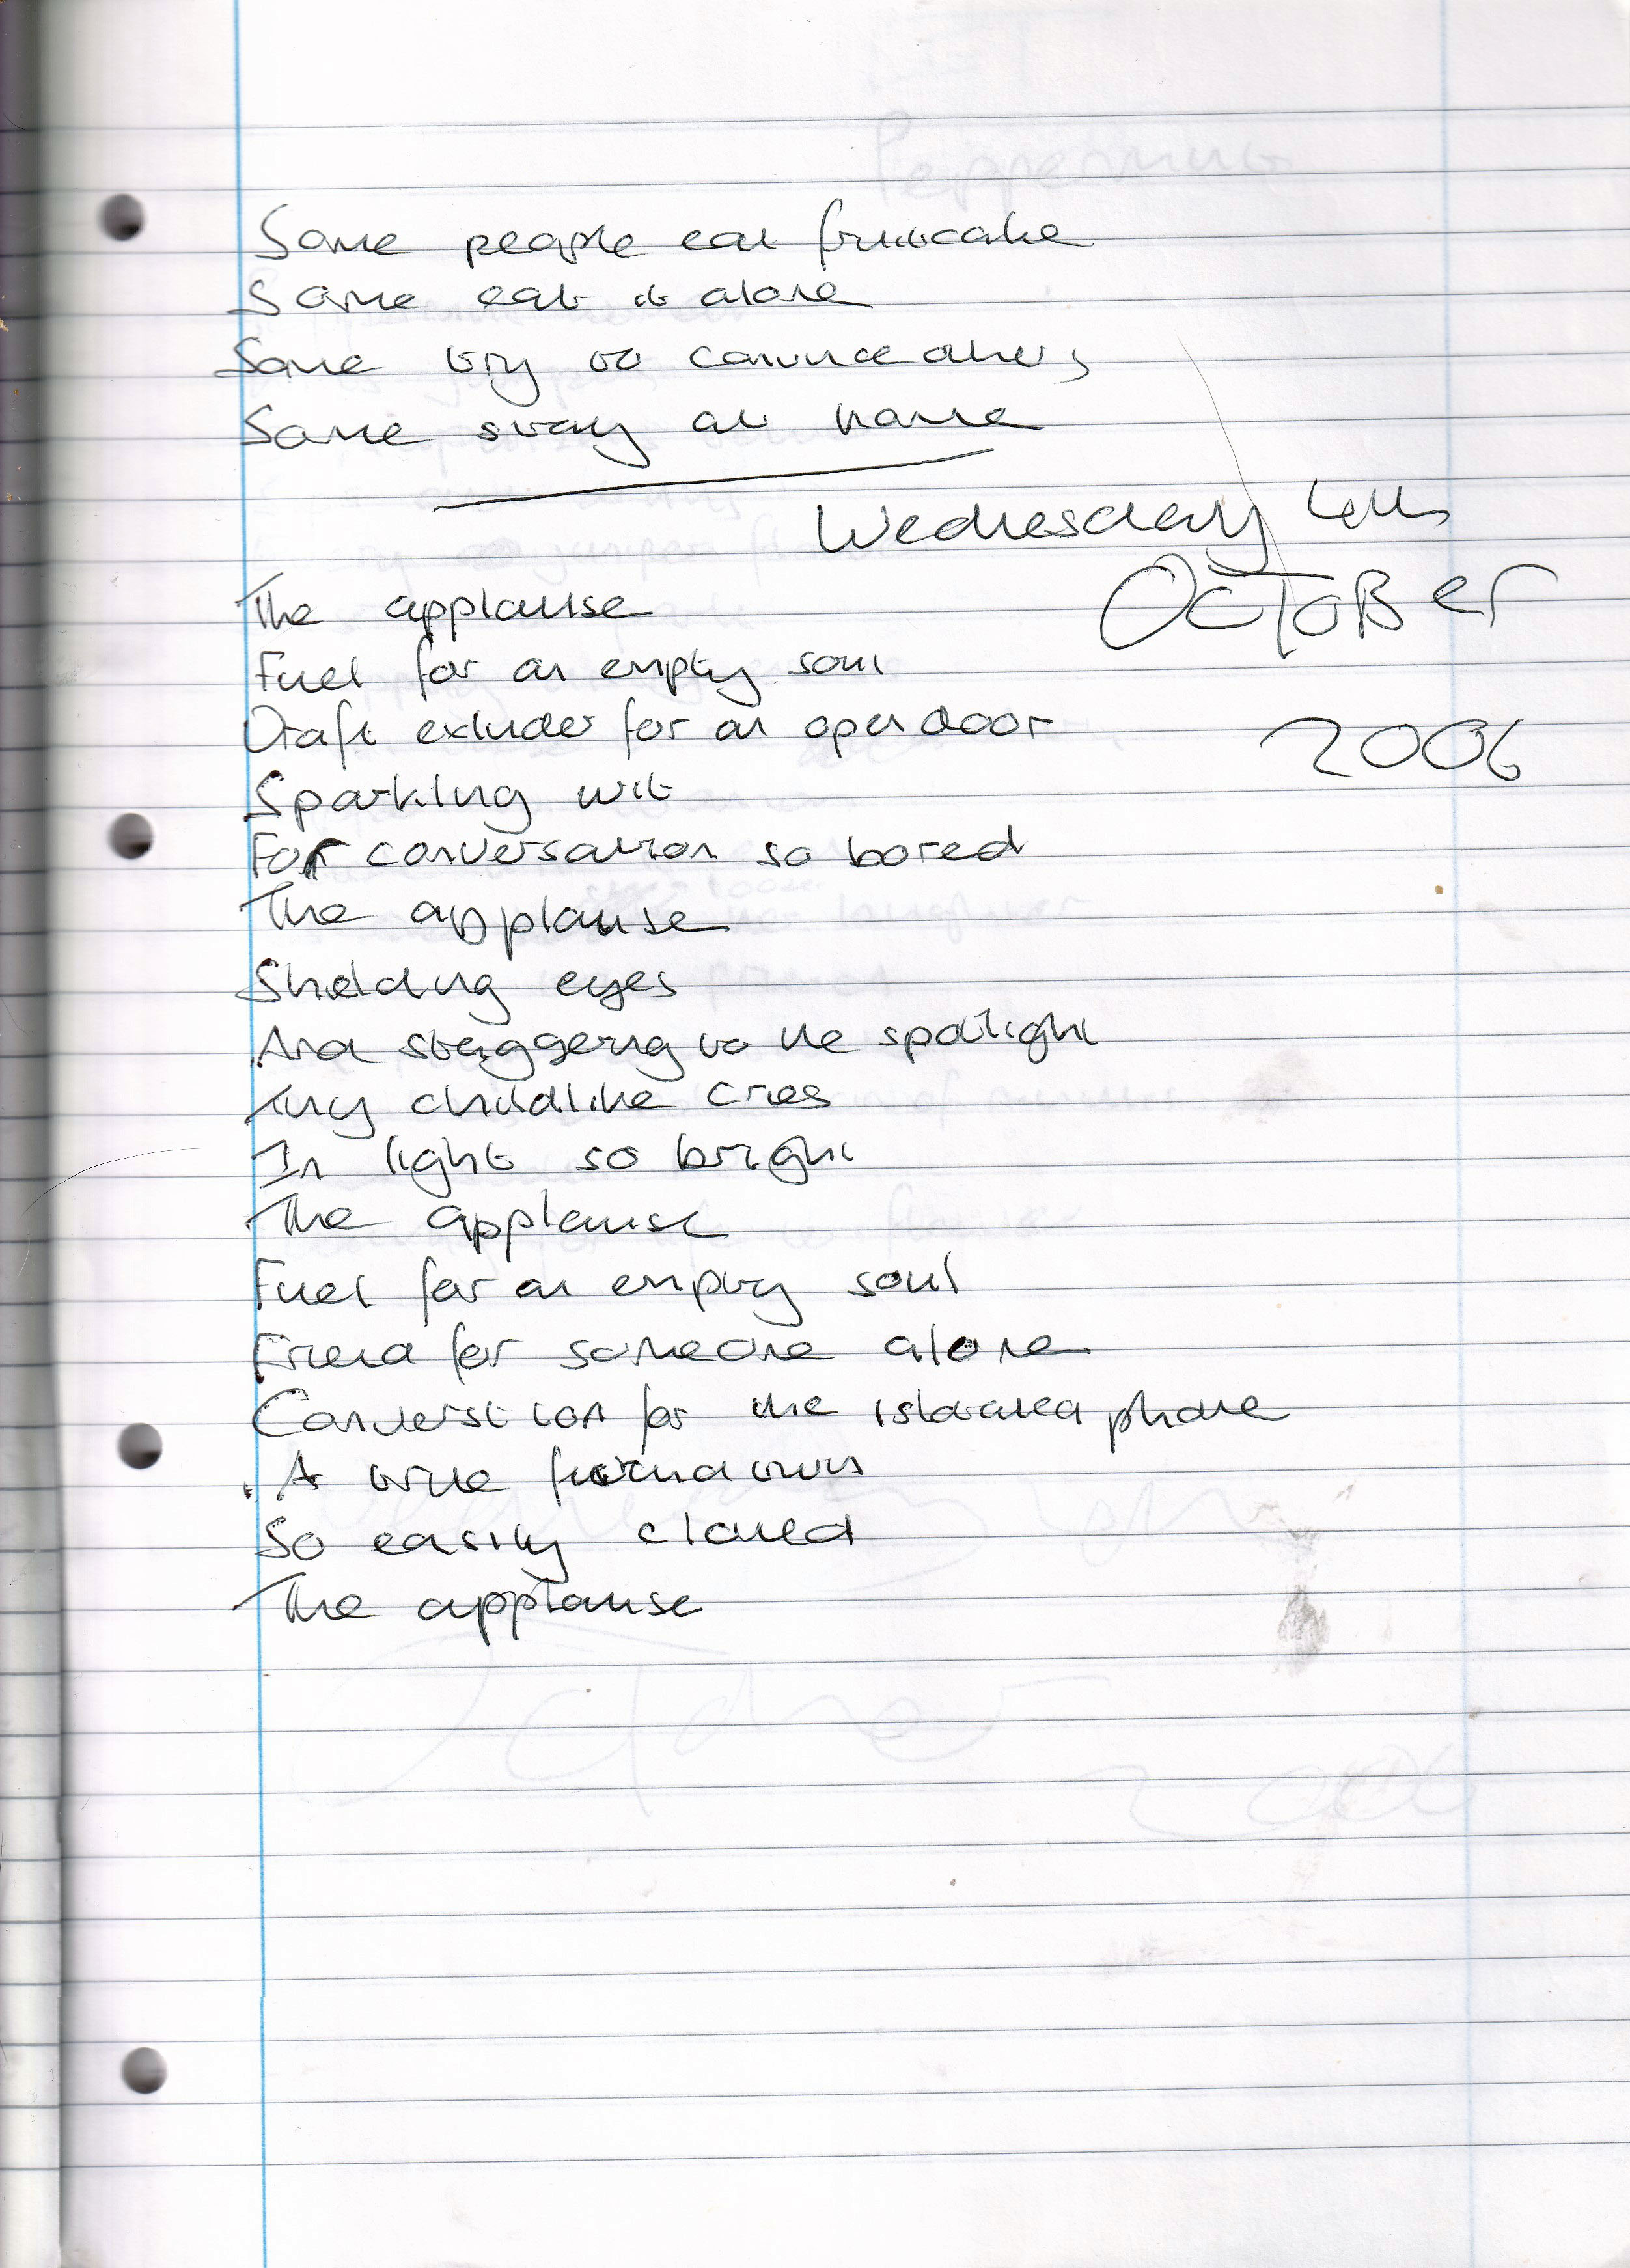 Some people eat fruitcake
Some eat it alone
Some try to convince others
Some stay at home
Wednesday 4th
OCTOBER
2006
The applause
Fuel for an empty soul
Draft exluder for an open door
Sparkling wit
For conversation so bored
The applause
Shielding eyes
And staggering to the spotlight
Tiny childlike cries
In light so bright
The applause
Fuel for an empty soul
Friend for someone alone
Converstion for the phone
A true
So easily cloned
The applause